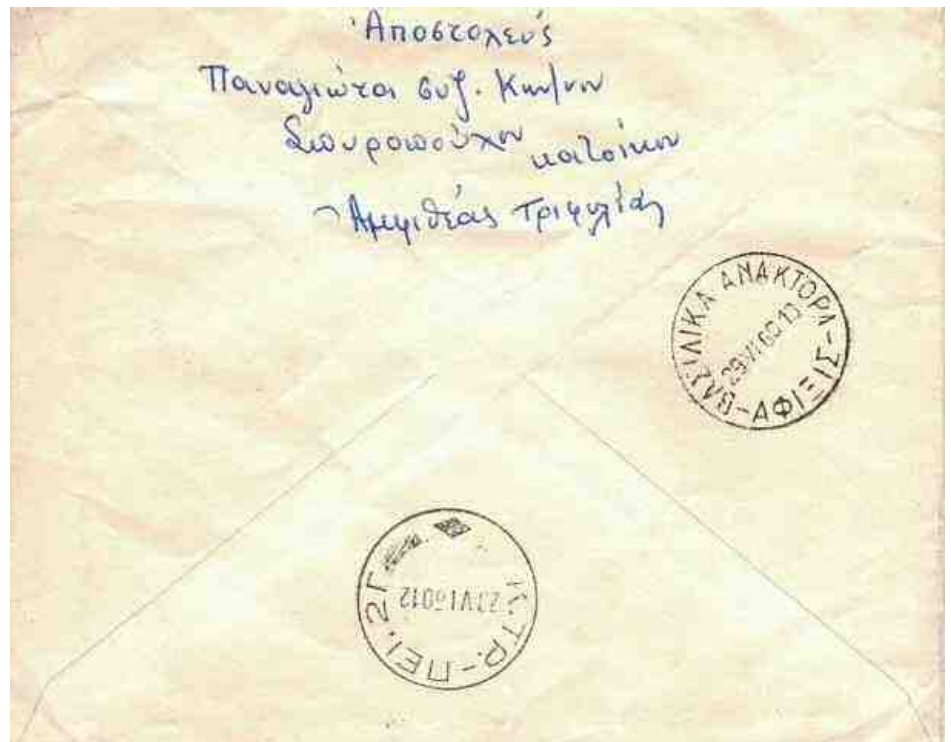 Ἀποστολεύς
Παναγιώτα συζ. Κων/νου
Σπυροπούλου κατοίκου
Ἀμφιθέας Τριφυλίας
ΒΑΣΙΛΙΚΑ ΑΝΑΚΤΟΡΑ-ΑΦΙΞΙΣ-
29VI60·13
Κ.ΤΡ.-ΠΕΙ.2Γ